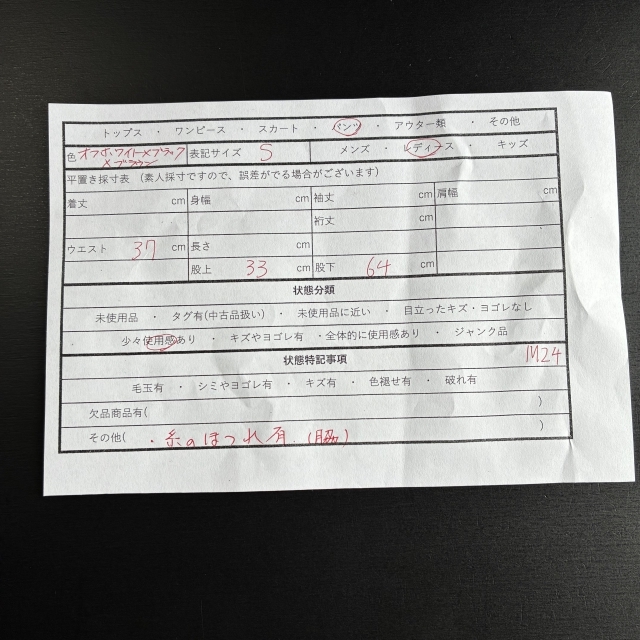 トップス ・ ワンピース ・ スカート ・ パンツ ・ アウター類 ・ その他
色 オフホワイト×ブラック×ブラウン 表記サイズ S メンズ ・ レディース ・ キッズ
平置き採寸表 （素人採寸ですので、誤差がでる場合がございます）
着丈 cm 身幅 cm 袖丈 cm 肩幅 cm
裄丈 cm
ウエスト 37 cm 長さ cm
股上 33 cm 股下 64 cm
状態分類
未使用品 ・ タグ有(中古品扱い) ・ 未使用品に近い ・ 目立ったキズ・ヨゴレなし
少々使用感あり ・ キズやヨゴレ有 ・全体的に使用感あり ・ ジャンク品
状態特記事項 M24
毛玉有 ・ シミやヨゴレ有 ・ キズ有 ・ 色褪せ有 ・ 破れ有
欠品商品有( )
その他( ・糸のほつれ有 (脇) )